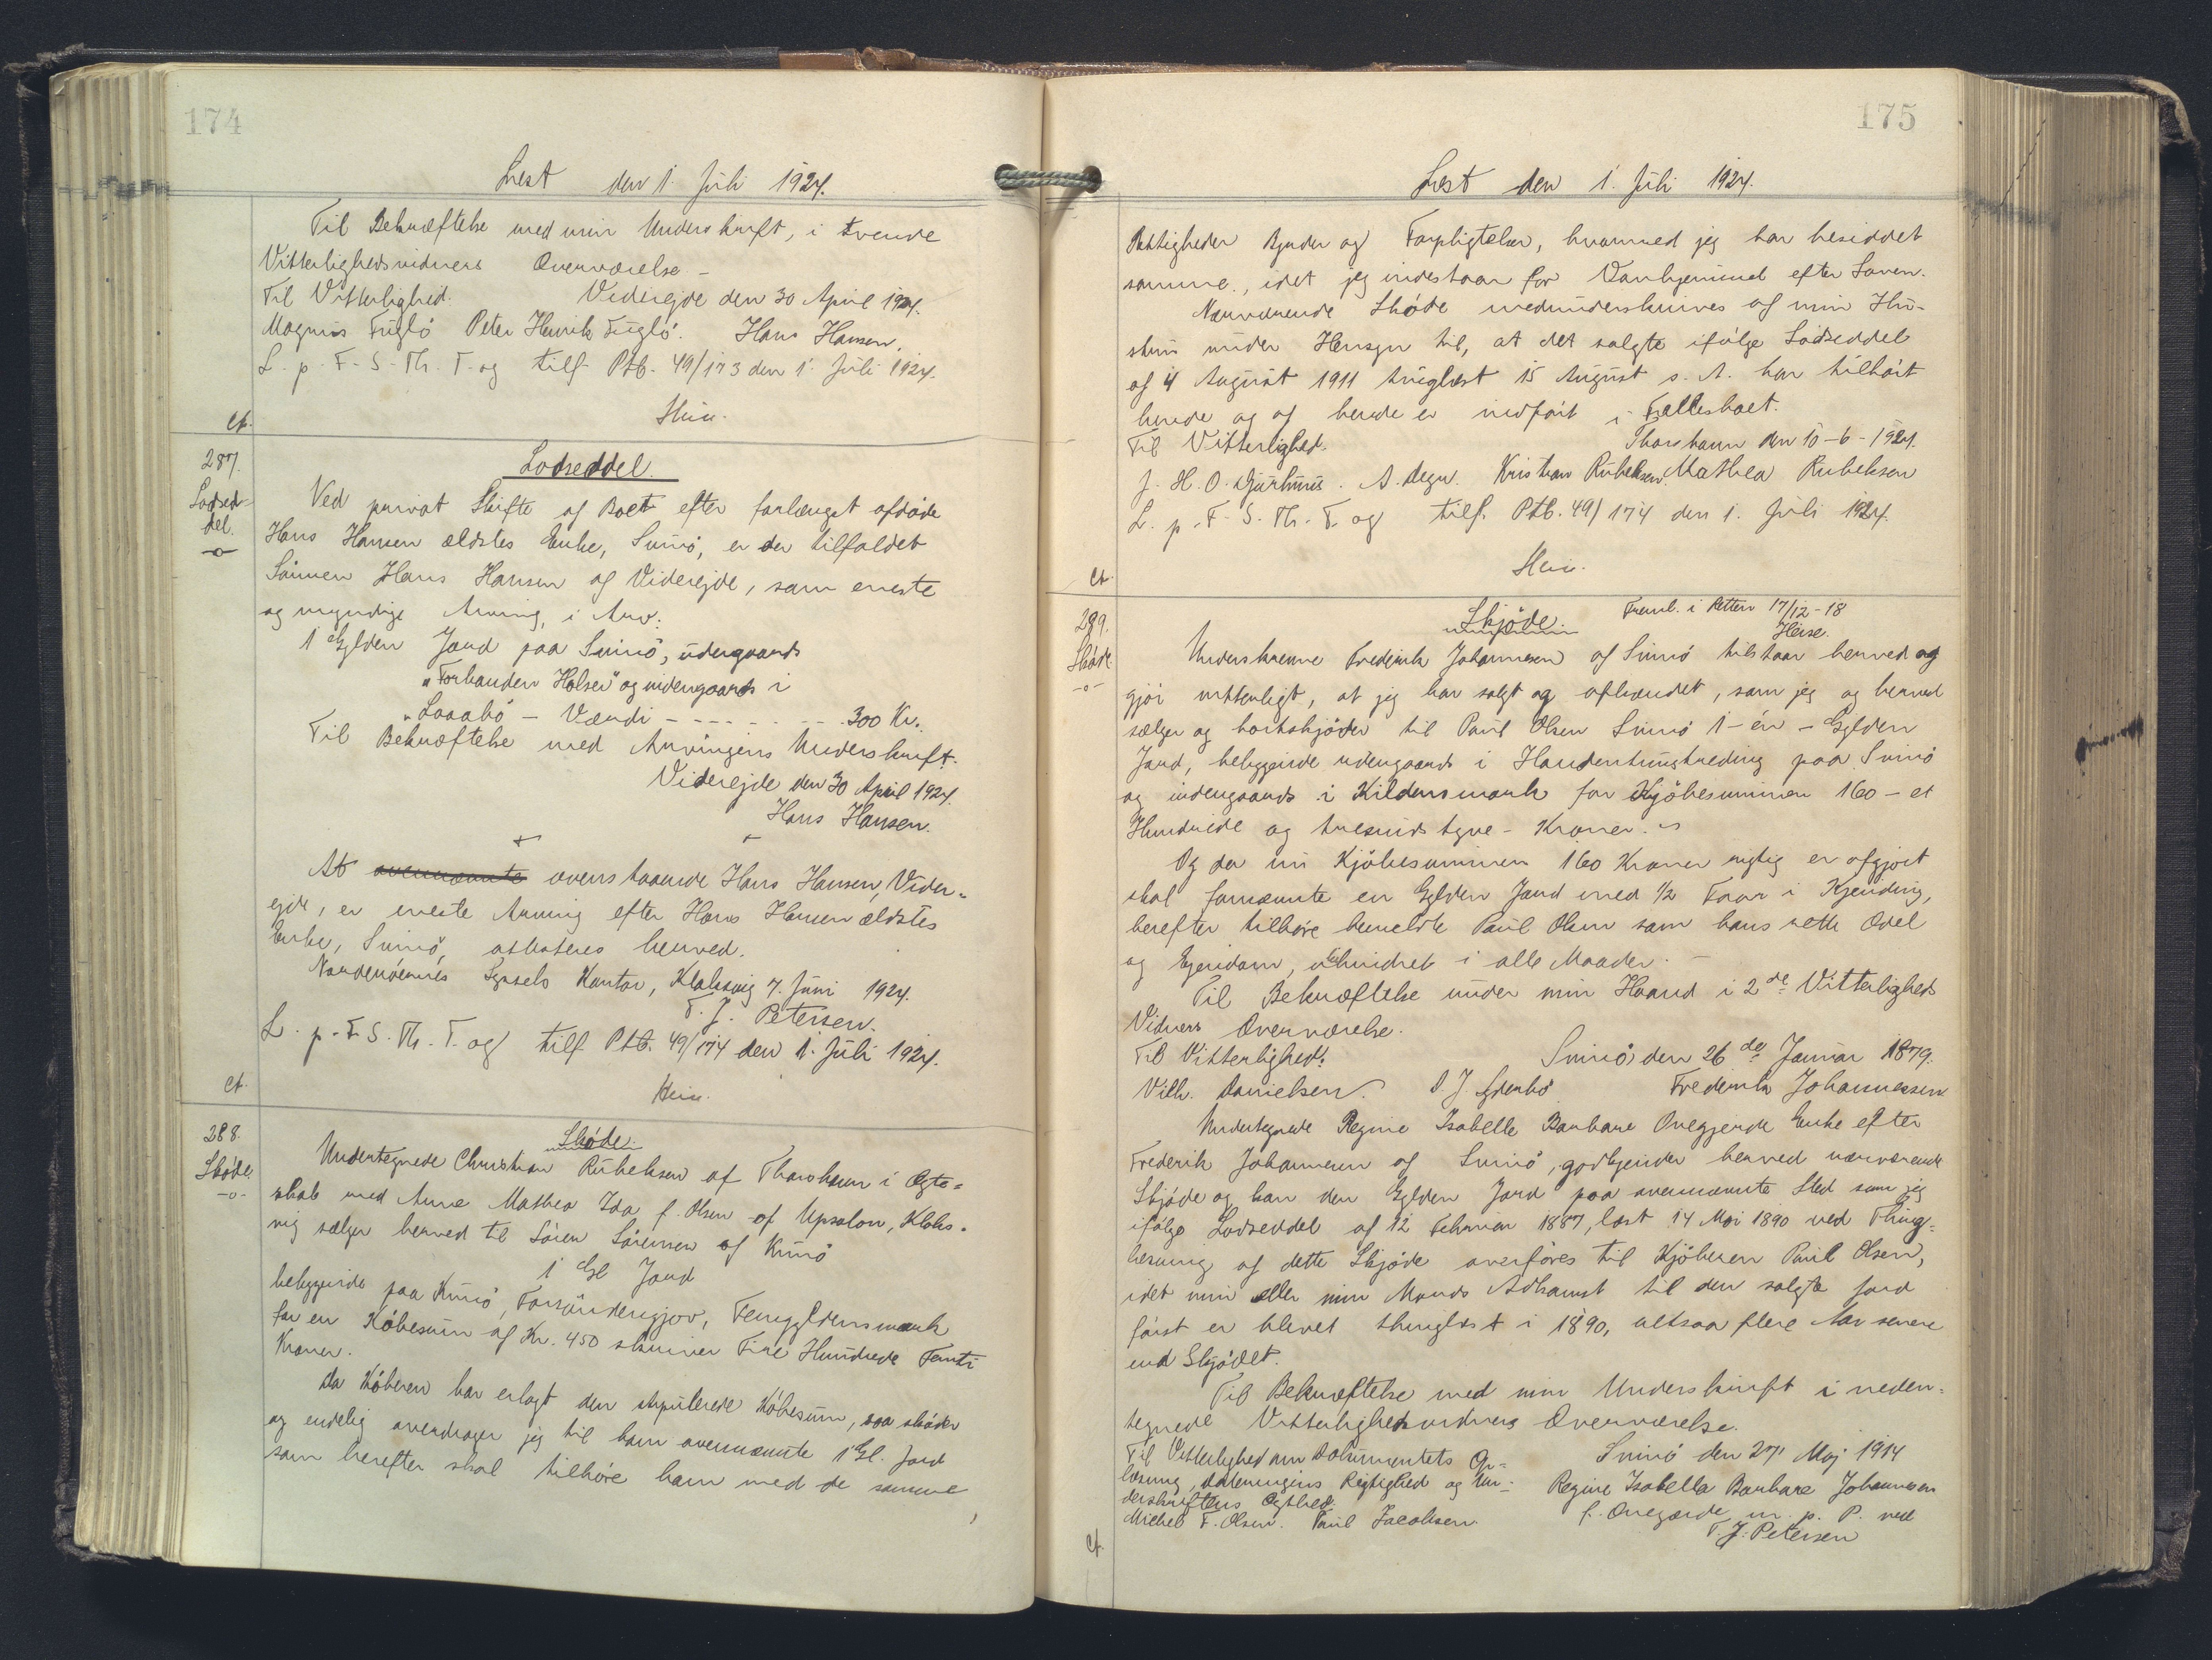 174
Læst den 1. Juli 1924.
Til Bekræftelse med min Underskrift, i tvende
Vitterlighedsvidners Overværelse.-
Til Vitterlighed. Viderejde den 30 April 1924.
Magnus Fuglö Peter Henrik Fuglö. Hans Hansen.
L. p. F. S. Th. T. og tilf. Ptb. 49/173 den 1. Juli 1924.
Hein.
Ct.
287.
Lodsed-
del.
-o-
Lodseddel.
Ved privat Skifte af Boet efter forlængst afdøde
Hans Hansen ældstes Enke, Svinö, er der tilfaldet
Sönnen Hans Hansen af Viderejde, som eneste
og myndige Arving, i Arv:
1 Gylden Jord paa Svinö, udengaards
"Forhanden Halsen" og indengaards i
"Laaabö - Værdi - - - - - - - 300 Kr.
Til Bekræftelse med Arvingens Underskrift.
Viderejde den 30 April 1924.
Hans Hansen.
At ovennævnte ovenstaaende Hans Hansen, Vider-
ejde, er eneste Arving efter Hans Hansen ældstes
Enke, Svinö, attesteres herved.
Norderöernes Syssels Kontor, Klaksvig 7. Juni 1924.
T. J. Petersen.
L. p. F. S. Th. T. og tilf. Ptb. 49/174 den 1. Juli 1924.
Hein.
Ct.
288.
Skøde.
-o-
Skøde.
Undertegnede Christian Rubeksen af Thorshavn i Ægte=
skab med Anne Mathea Ida f. Olsen af Upsalon, Klaks-
vig sælger herved til Sören Sörensen af Kunö
1 Gl Jord
beliggende paa Kunö, Forsöndengjov, Femgyldensmark
for en Købesum af Kr. 450 skriver Fire Hundrede Femti
Kroner.
Da Køberen har erlagt den stipulerede Købesum, saa skøder
og endelig overdrager jeg til ham ovennævnte 1 Gl. Jord
som herefter skal tilhøre ham med de samme
175
Læst den 1. Juli 1924.
Rettigheder Byrder og Forpligtelser, hvormed jeg har besiddet
samme, idet jeg indestaar for Vanhjemmel efter Loven.
Nærværende Skøde medunderskrives af min Hu-
stru under Hensyn til, at det solgte ifølge Lodseddel
af 4 August 1911 tinglæst 15 August s. A. har tilhørt
hende og af hende er indført i Fællesboet.
Til Vitterlighed. Thorshavn den 10-6-1924.
J. H. O. Djurhuus. A. Degn. Kristian Rubeksen. Mathea Rubeksen
L. p. F. S. Th. T. og tilf. Ptb. 49/174 den 1. Juli 1924.
Hein.
Ct.
289.
Skøde
-o-
Skjöde. Freml. i Retten 17/12-18
Heise.
Underskrevne Frederik Johannesen af Svinö tilstaar herved og
gjör vitterligt, at jeg har solgt og afhændet, som jeg og herved
sælger og bortskjöder til Poul Olsen Svinö 1 - en - Gylden
Jord, beliggende udengaards i Handentungtreding paa Svinö
og indengaards i Kildersmark for Kjöbesummen 160 - et
Hundrede og tresindstyve - Kroner.
Og da nu Kjöbesummen 160 Kroner rigtig er afgjort
skal fornævnte en Gylden Jord med 1/2 Faar i Kjending,
herefter tilhøre bemeldte Poul Olsen som hans rette Odel
og Ejendom, uhindret i alle Maader. -
Til Bekræftelse under min Haand i 2de Vitterligheds
Vidners Overværelse.
Til Vitterlighed: Svinö, den 26de Januar 1879.
Vilh. Danielsen. Frederik Johannessen
Undertegnede Regine Isabelle Barbare Oregjerde Enke efter
Frederik Johannesen af Svinö, godkjender herved nærværende
Skjöde og kan den Gylden Jord paa ovennævnte Sted som jeg
ifølge Lodseddel af 12 Februar 1887, læst 14 Mai 1890 ved Thing-
læsning af dette Skjøde overføres til Kjöberen Poul Olsen,
idet min eller min Mands Adkomst til den solgte Jord
först er blevet thinglæst i 1890, altsaa flere Aar senere
end Skjödet.
Til Bekræftelse med min Underskrift i neden-
tegnede Vitterlighedsvidners Overværelse.
Til Vitterlighed om Dokumentets Op- Svinö den 27' Maj 1914
læsning, Dateringens Rigtighed og Un- Regine Isabella Barbare Johannesen
derskriftens Ægthed. f. Oregærde m. p. P. ved
Michel F. Olsen. Poul Jacobsen. T. J. Petersen
Ct.